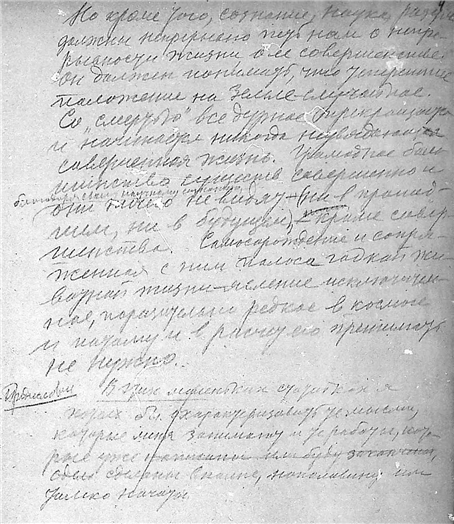 Но кроме того, сознание, наука, разум
должны непрерывно петь нам о непре-
рывности жизни и ее совершенстве.
он должны понимать, что теперешнее
положение на Земле случайное.
Со "смертью" все дурное прекращается
и начинается никогда непрекращаю
совершенная жизнь. Громадное боль-
шинство существ совершенно и
благодаря своему
они ничего не видят ни в прошед-
шем, ни в будущем, кроме совер-
шенства. Самозарождение и сопря-
женная с ним полоса гадкой жи-
вотной жизни явление исключитель-
ное, поразительно редкое в космосе
и потому и в расчет его принимать
не нужно.
В этих маленьких статейках я
хотел бы охарактеризовать те мысли,
которые меня занимают и те работы, кото-
рые уже написаны или будут закончены,
одни сделаны вполне, наполовину или
только начаты.